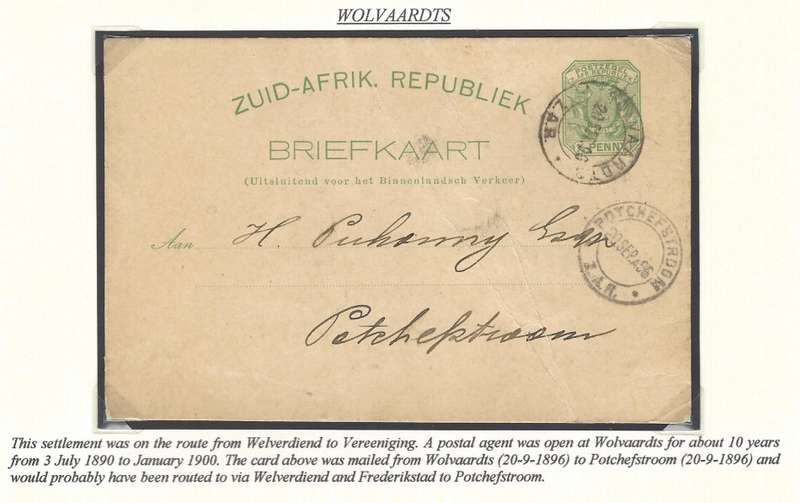 WOLVAARDTS
POSTZEGEL
Z. AFR. REPUBLIEK
PENNY
ZUID-AFRIK. REPUBLIEK
BRIEFKAART
(Uitsluitend voor het Binnenlandsch Verkeer)
WOLVAARDTS
Z.A.R.
Aan H. Puhanny Esqr
POTCHEFSTROOM
20 SEP. 96
Z.A.R.
Potchefstroom
This settlement was on the route from Welverdiend to Vereeniging. A postal agent was open at Wolvaardts for about 10 years
from 3 July 1890 to January 1900. The card above was mailed from Wolvaardts (20-9-1896) to Potchefstroom (20-9-1896) and
would probably have been routed to via Welverdiend and Frederikstad to Potchefstroom.